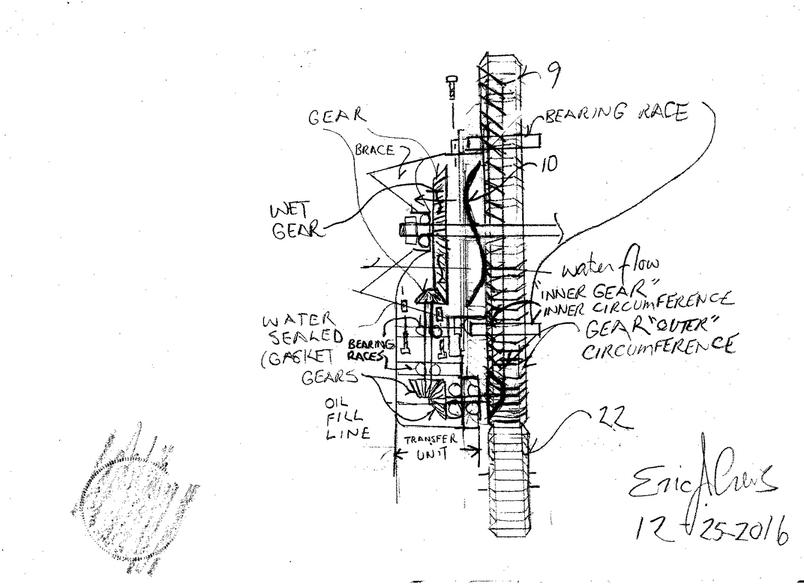 9
BEARING RACE
GEAR
BRACE
10
WET
GEAR
water flow
"INNER GEAR"
INNER CIRCUMFERENCE
GEAR "OUTER"
CIRCUMFERENCE
WATER
SEALED
(GASKET
BEARING
RACES
GEARS
OIL
FILL
LINE
TRANSFER
UNIT
22
12-25-2016